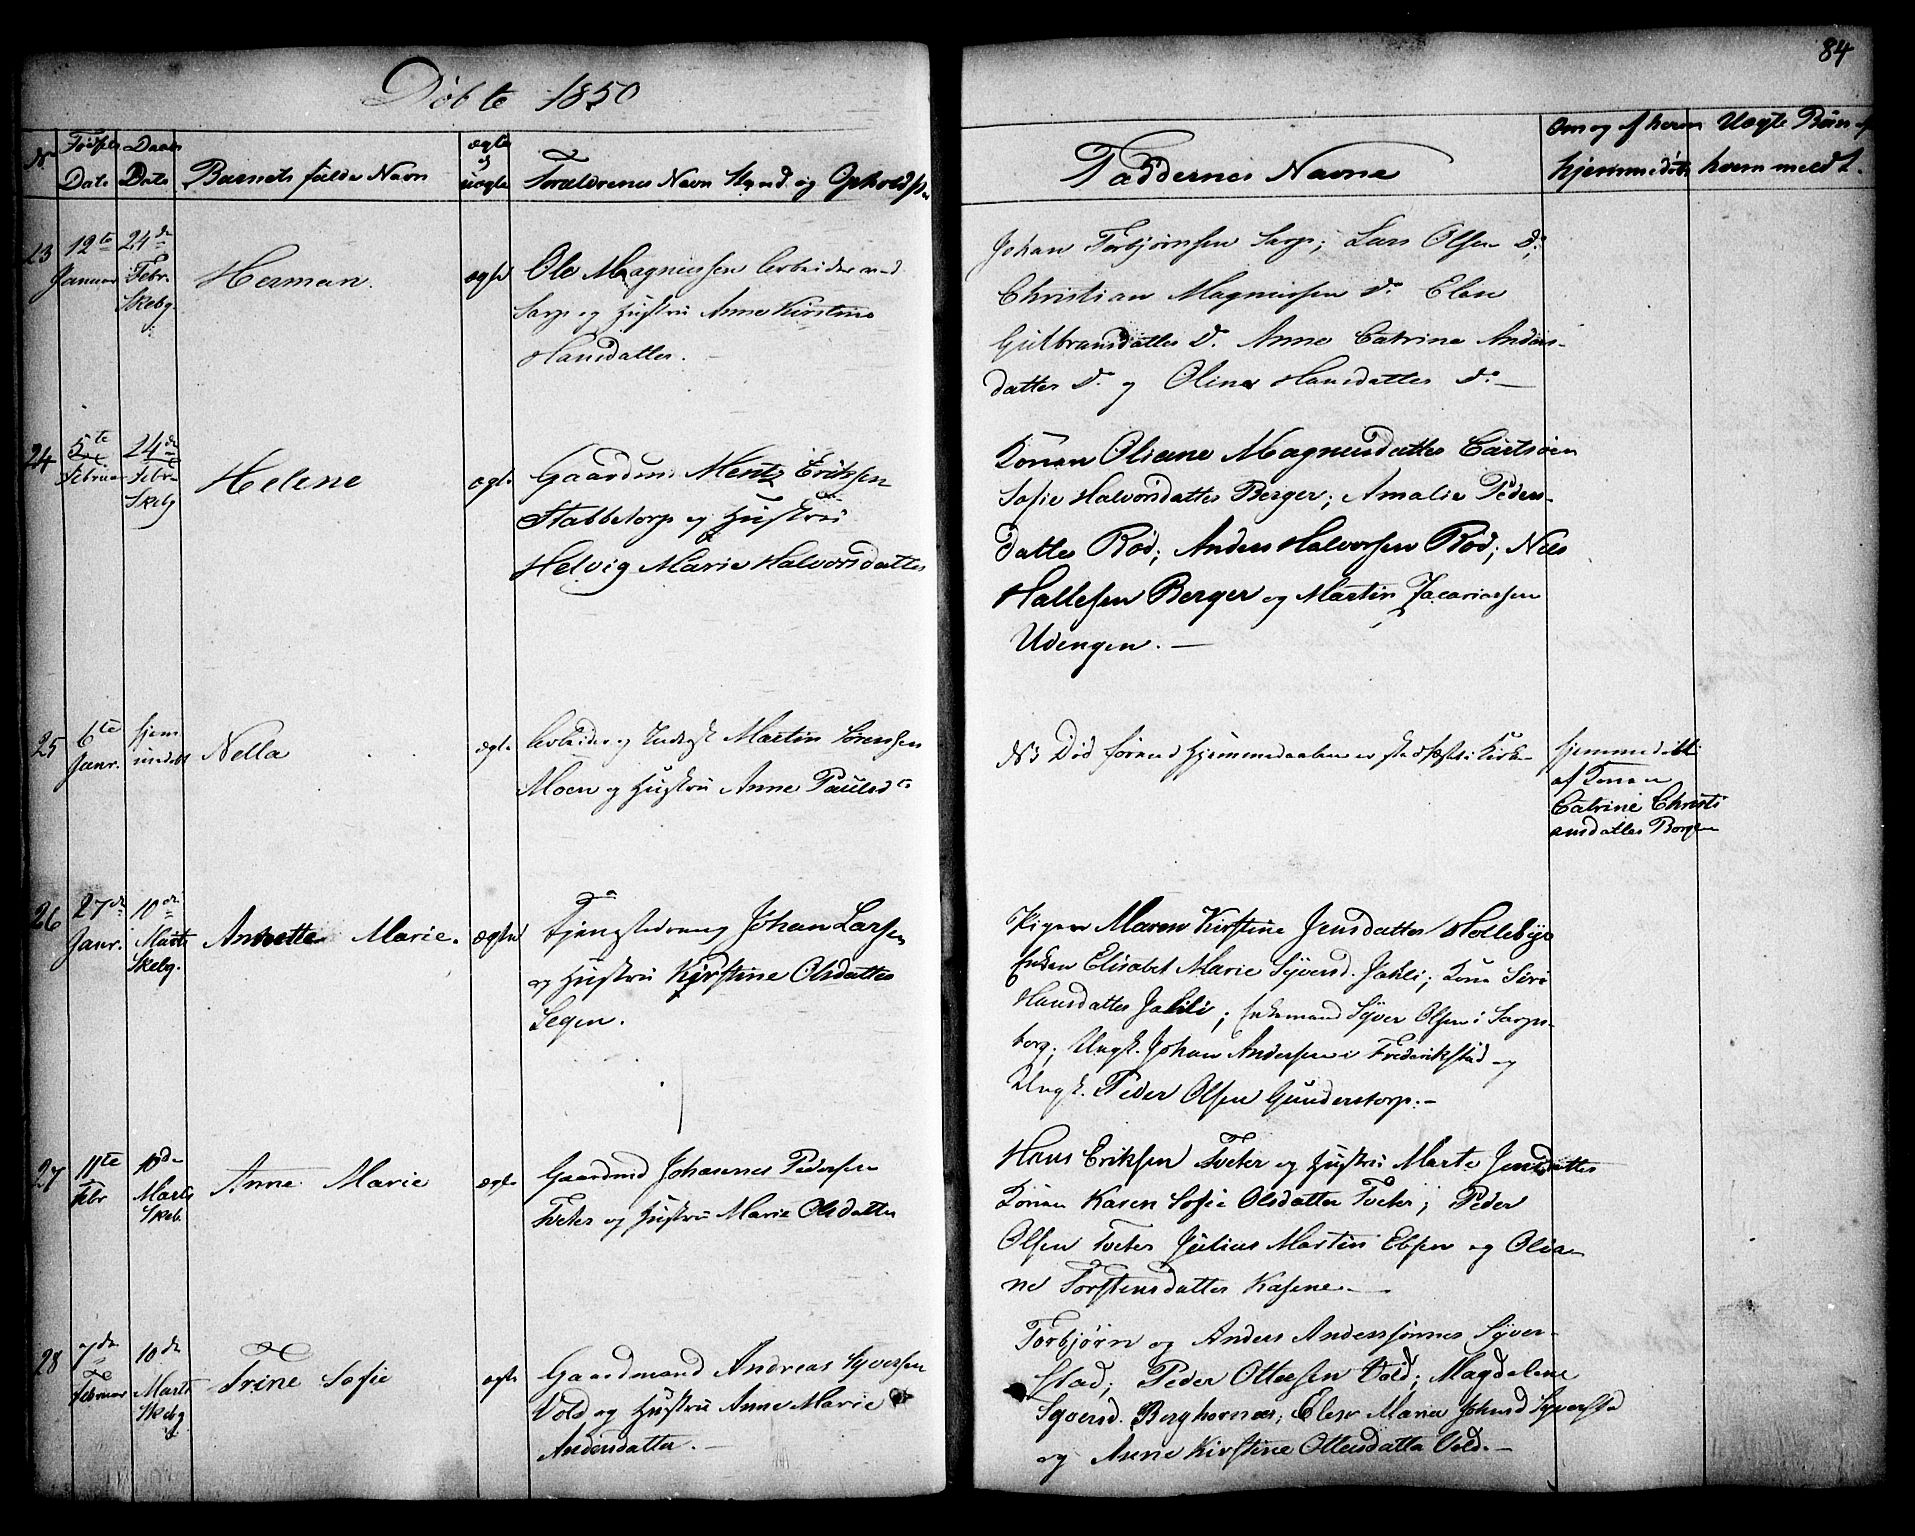 84
Döbte 1850
No Fødsels Dato
Daabs Dato
Barnets fulde Navn
ægte og uægte
Forældrenes Navn Stand og Opholdst
Faddernes Navne
Om og af hvem hjemmedöbt
Uægte Börn af hvem meldt.
23
12te Januar
24de Febr. Skebg.
Herman.
ægte
Ole Magnussen Arbeider ved
Sarp og Hustru Anne Kirstine
Hansdatter.
Johan Torbjørnsen Sarp; Lars Olsen Do;
Christian Magnussen Do Elen
Gulbransdatter Do. Anne Catrine Anders-
datter Do og Oline Hansdatter Do. —
24
5te Februar
24de Febr. Skebg
Helene
ægte
Gaardm. Mentz Eriksen
Stabbetorp og Hustru
Helvig Marie Halvorsdatter
Konen Oliane Magnusdatter
Sofie Halvorsdatter Berger; Amalie Peders-
datter Rod; Anders Halvorsen Rod; Nils
Hallesen Berger og Martin Zacariassen
Udengen. —
25
6te Janr.
hjem medöbt
Nella
ægte
Arbeider og Inderst Martin Sørensen
Moen og Hustru Anne Paulsdr
NB Död förend Hjemmedaaben er stadfæstet i Kirken
hjemmedöbt
af Konen
Catrine Christi
ansdatter Borgen
26
27de Janr.
10de Marts Skebg.
Annette Marie.
ægte
Tjenestedreng Johan Larsen
og Hustru Kirstine Olsdatter
Legen.
Pigen Maren Kirstine Jensdatter Hollebye
Enken Elisabet Marie Syversd. Jahli; Kone Siri
Hansdatter Jahli; Enkemand Syver Olsen i Sarps-
borg; Ungk. Johan Andersen i Frederikstad og
Ungk. Peder Olsen Gunderstorp. —
27
11te Febr
10de Marts Skeb.
Anne Marie
ægte
Gaardmd Johannes Pedersen
Tveter og Hustru Marie Olsdatter
Hans Eriksen Tveter og Hustru Marte Jensdatter
Konen Karen Sofie Olsdatter Tveter; Peder
Olsen Tveter Julius Martin Ebsen og Olia-
ne Torstensdatter Kasene. —
28
7de Februar
10de Marts Skebg
Trine Sofie
ægte
Gaardmand Andreas Syversen
Vold og Hustru Anne Marie
Andersdatter. —
Torbjørn og Anders Anderssønner Syver-
stad; Peder Ottersen Vold; Magdalene
Syversd. Berghornæs; Elen Maria Johnsd Syverstad
og Anne Kirstine Ottersdatter Vold. —